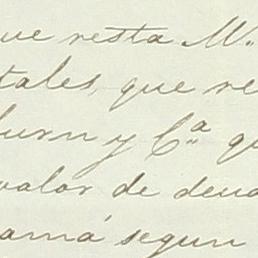 que resta M.
tales, que re
burn y C.ª qu
valor de deud
amá segun